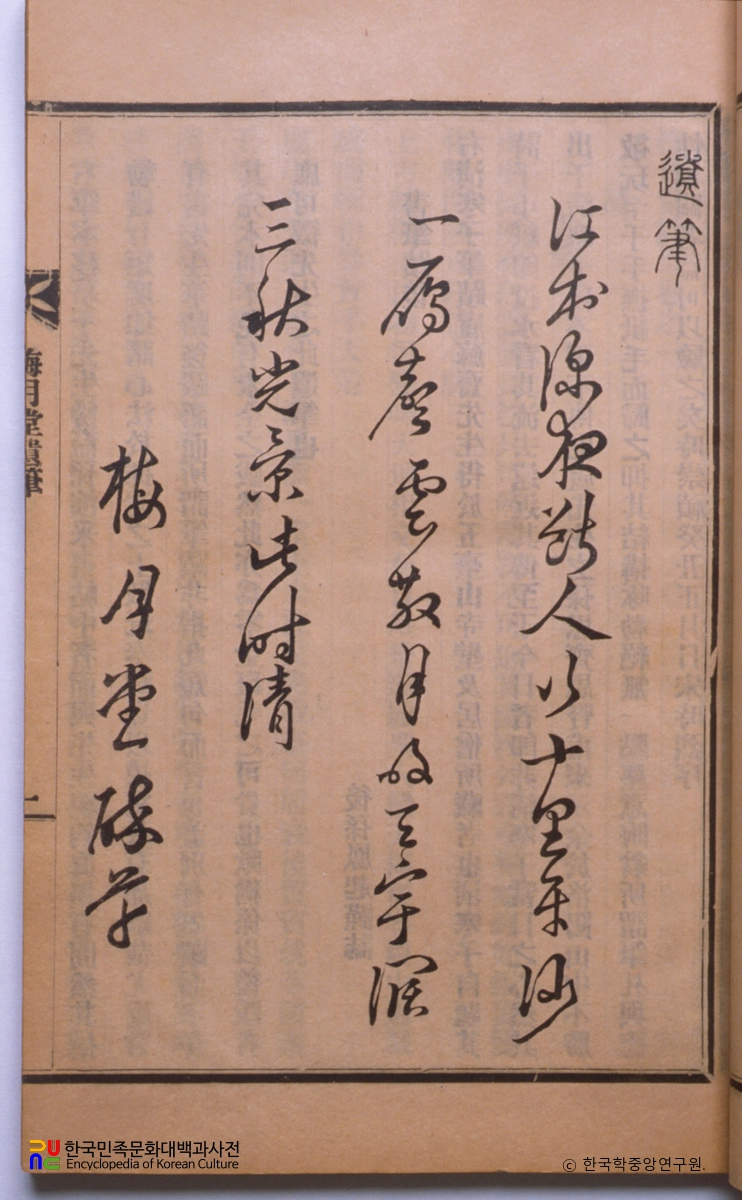 遺筆
江村深夜斷人行十里平沙
一鴈聲雲散月明天宇濶
三秋光景此時清
梅月堂醉草
梅月堂遺筆
一
한국민족문화대백과사전
Encyclopedia of Korean Culture
© 한국학중앙연구원.